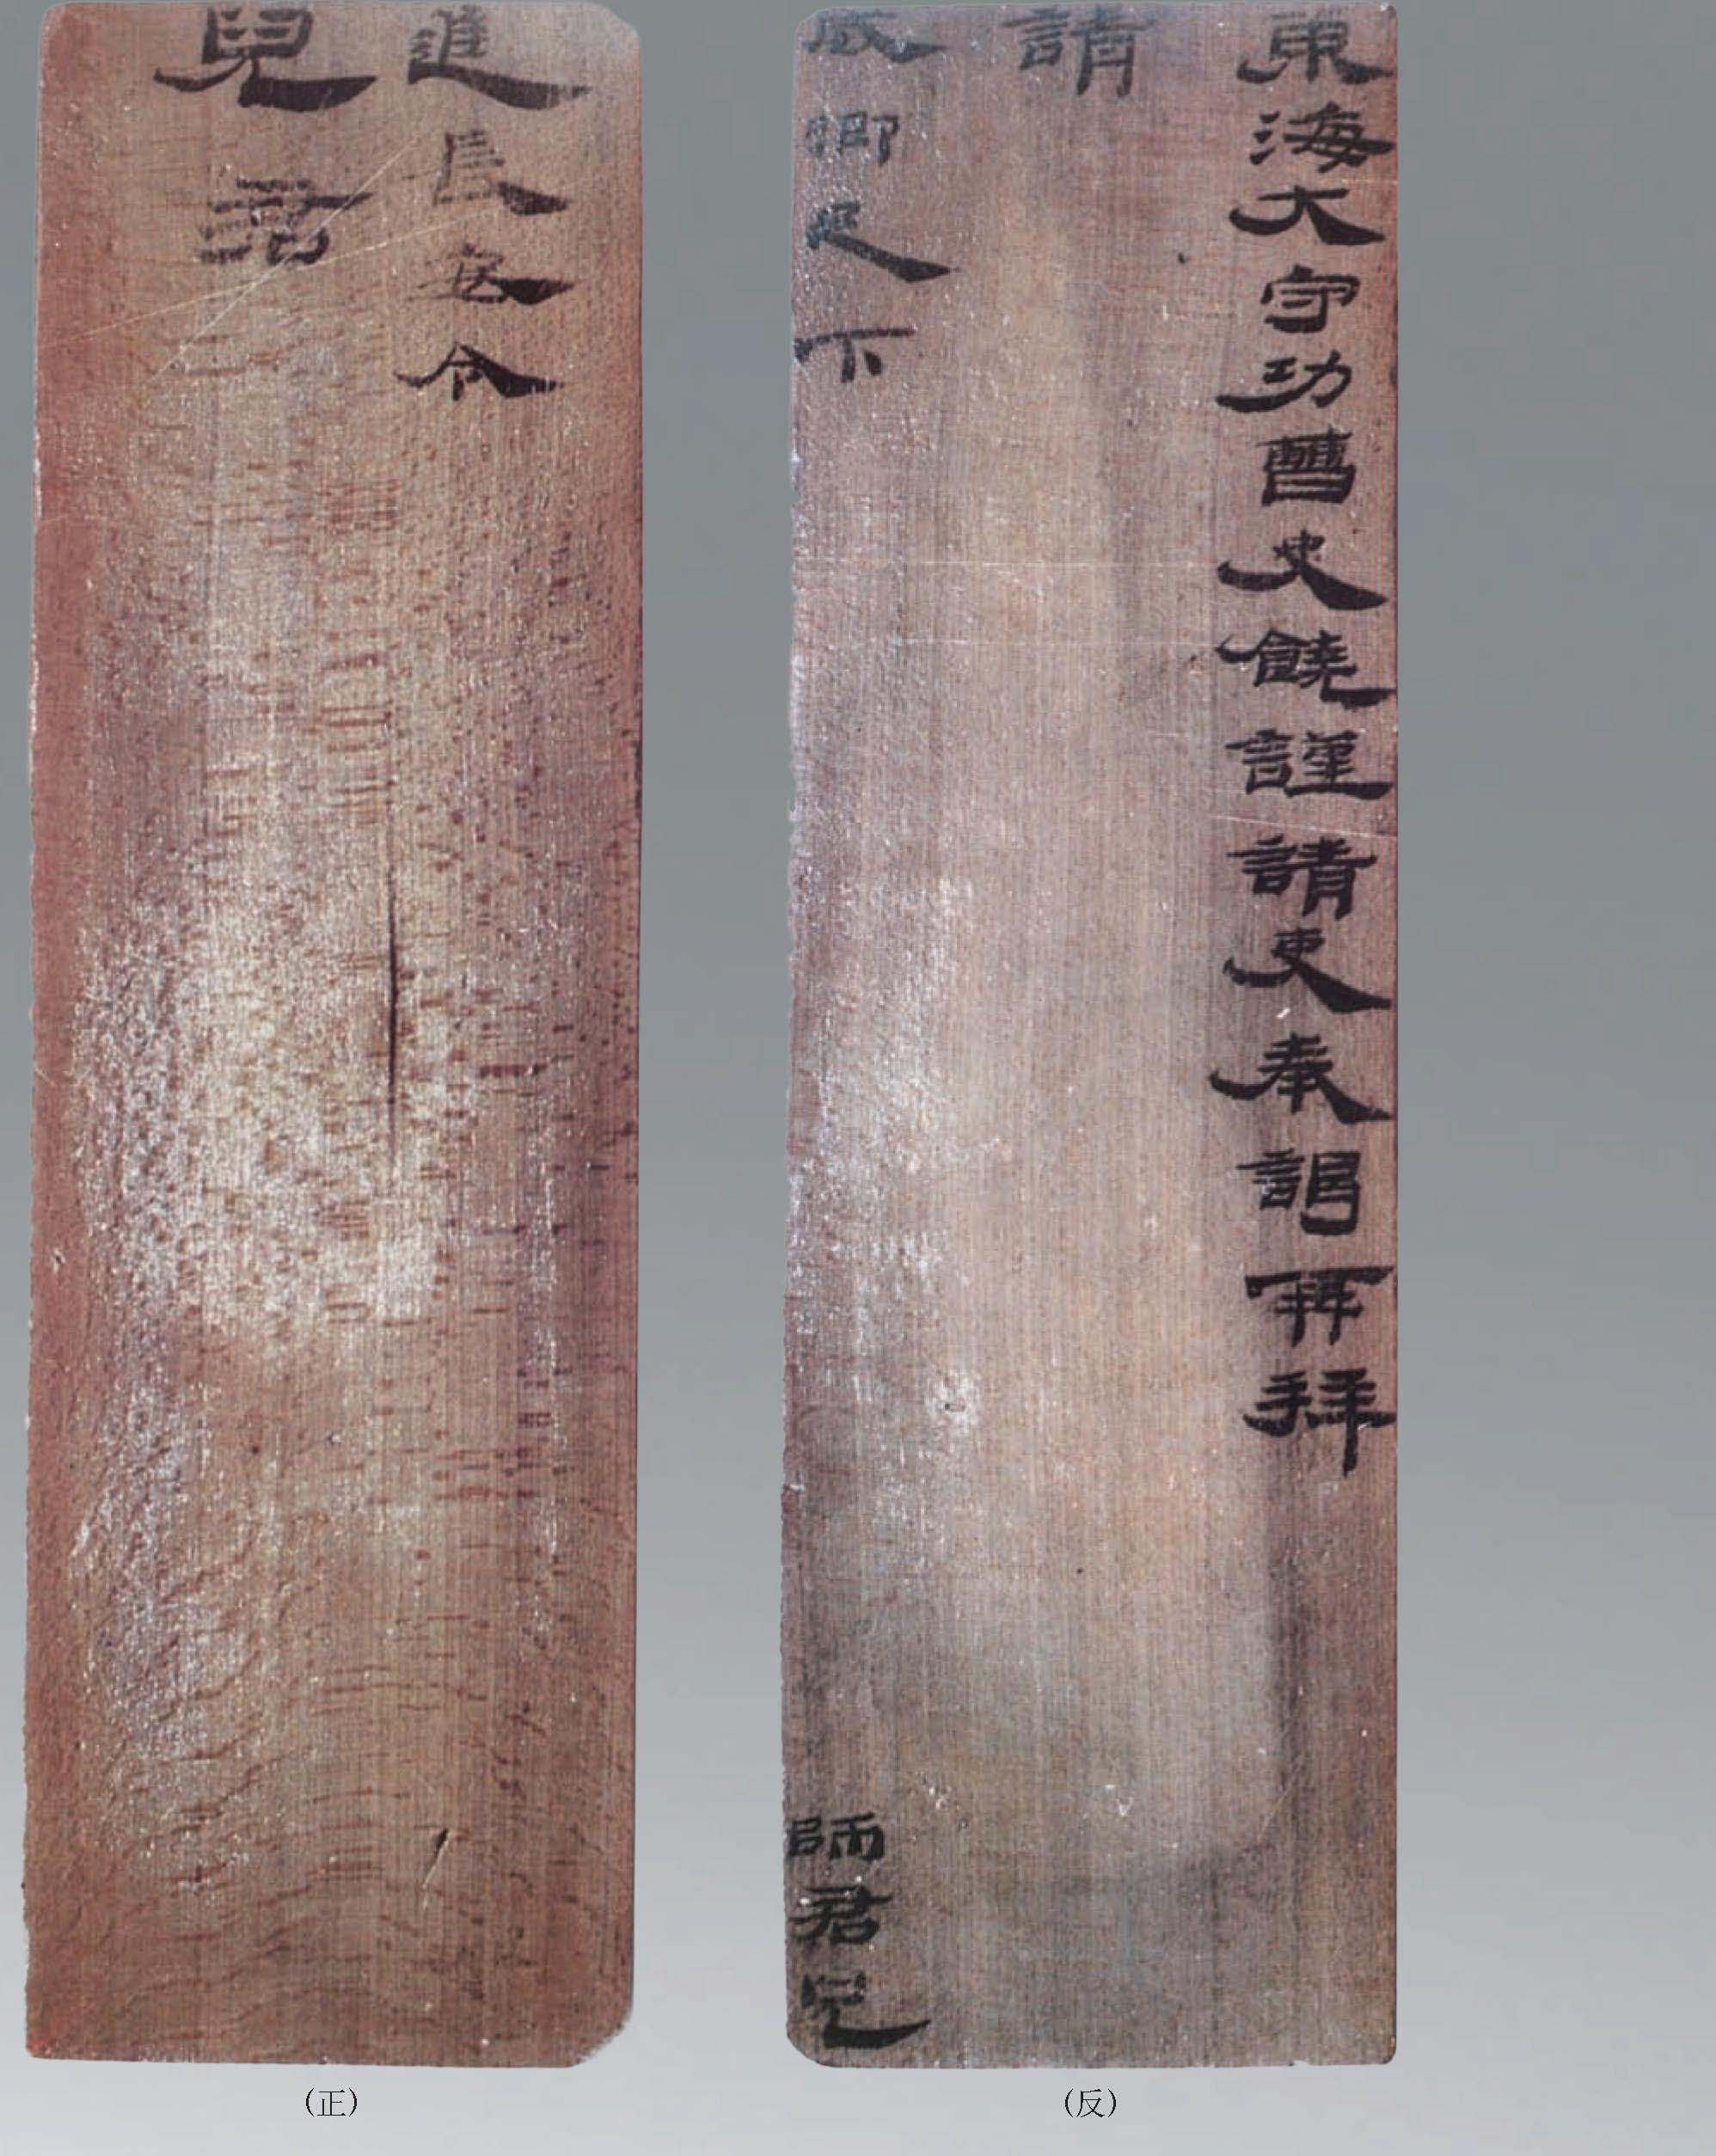 進長安令
兒君
東海大守功曹史饒謹請吏奉謁再拜
請
威卿足下 師君兄
(正)
(反)